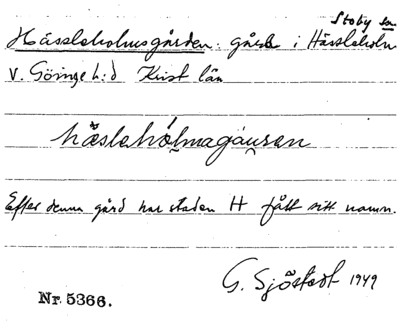 Stoby sn
Hässleholmsgården: gård i Hässleholm
V. Göinge h:d Krist län
hä̀sləhólmagáu̯ɳ
Efter denna gård har staden H fått sitt namn.
G. Sjöstedt 1949
Nr. 5366.